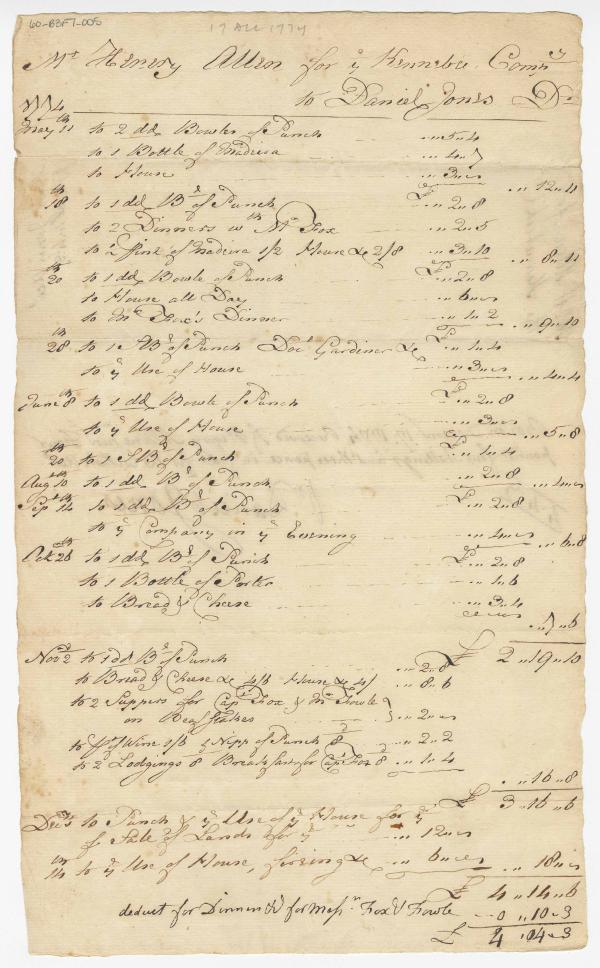 60-B3F7-005
17 Dec 1774
Mr Henery Allen for ye Kennebec Compy
to Daniel Jones Dr
1774
May 11th to 2 dd Bowles of Punch " 5 " 4
to 1 Bottle of Madira " 4 " 7
to House " 3 " "
£ " 12 " 11
18th to 1 dd Bl of Punch " 2 " 8
to 2 Dinners wth Mr Fox " 2 " 5
to Pint of Madira 1/2 House &c 2/8 " 3 " 10
£ " 8 " 11
20th to 1 dd Bowle of Punch " 2 " 8
to House all Day " 6 " "
to Mr Fox's Dinner " 1 " 2
£ " 9 " 10
28th to 1 Bl of Punch Docr Gardiner &c " 1 " 4
to ye Use of House " 3 " "
£ " 4 " 4
June 8th to 1 dd Bowle of Punch " 2 " 8
to ye Use of House " 3 " "
£ " 5 " 8
20th to 1 S Bl of Punch " 1 " 4
Aug 10th to 1 dd Bl of Punch " 2 " 8
£ " 4 " "
Sep 14th to 1 dd Bl of Punch " 2 " 8
to ye Company in ye Evening " 4 " "
£ " 6 " 8
Oct 26th to 1 dd Bl of Punch " 2 " 8
to 1 Bottle of Porter " 1 " 6
to Bread & Cheese " 3 " 4
" 7 " 6
£ 2 " 19 " 10
Nov 2d to 1 dd Bl of Punch " 2 " 8
to Bread & Cheese &c 4/6 House &c 4/ " 8 " 6
to 2 Suppers for Capt Fox & Mr Fowle
on Beaf Stakes " 2 " "
to Pt of Wine 1/6 & Nipp of Punch 8 " 2 " 2
to 2 Lodgings 8 Breakfast for Capt Fox 8 " 1 " 4
" 16 " 8
£ 3 " 16 " 6
Decr 5 to Punch & ye Use of ye House for ye
Sale of Lands for ye " 12 " "
14th to ye Use of House, firing &c " 6 " "
" 18 " "
£ 4 " 14 " 6
deduct for Dinner &c for Messrs Fox & Fowle 0 " 10 " 3
£ 4 " 04 " 3